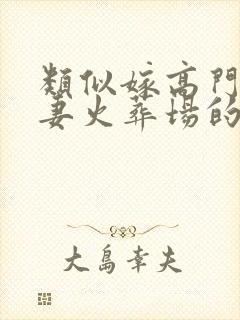 類似嫁高門
妻火葬場的
大島幸夫